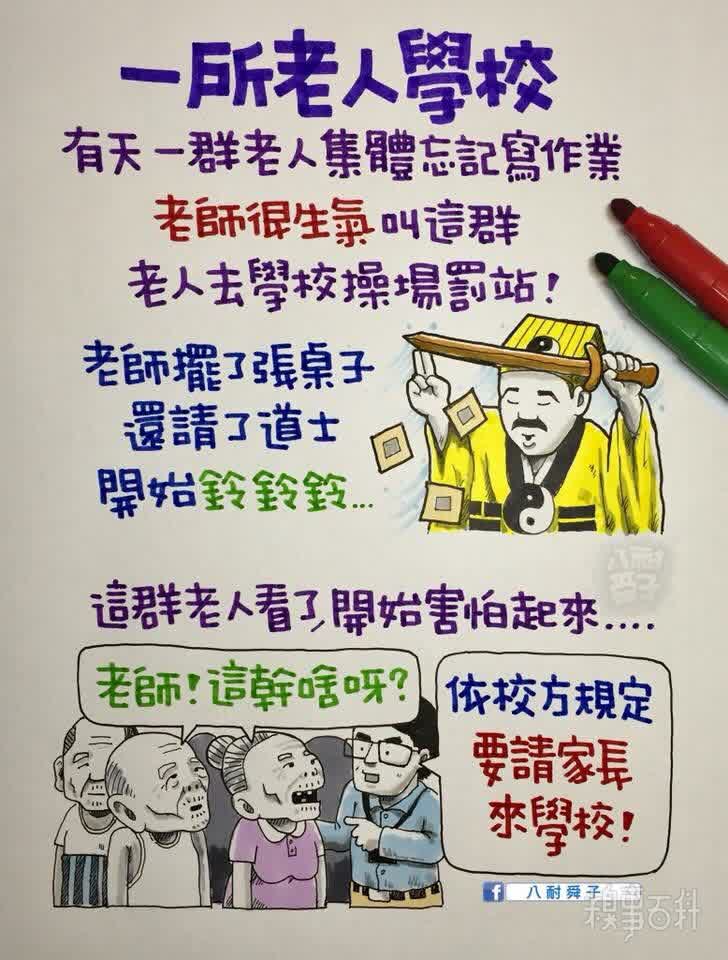 一所老人學校
有天一群老人集體忘記寫作業
老師很生氣叫這群
老人去學校操場罰站!
老師擺了張桌子
還請了道士
開始鈴鈴鈴...
這群老人看了,開始害怕起來....
老師!這幹啥呀?
依校方規定
要請家長
來學校!
八耐舜子
糗事百科